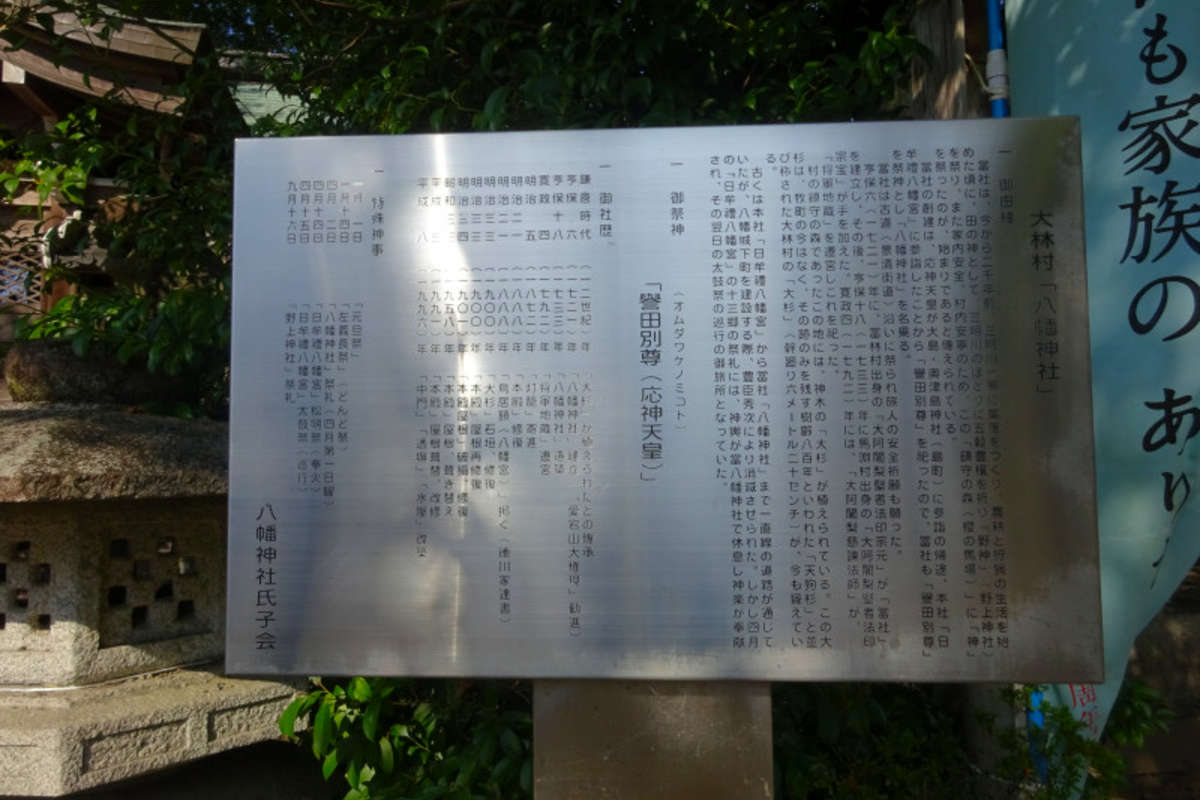 大林村「八幡神社」
一 御由緒
当社は、今から二千年前、三明川一帯に集落をつくり、農耕と狩猟の生活を始
めた頃に、田の神として、三明川のほとりに五穀豊穣を祈り「野神」(野上神社)
を祭り、また家内安全、村内安寧のため、この「鎮守の森(桜の馬場)」に「神」
を祭ったのが、始まりであると伝えられている。
当社の創建は、応神天皇が大島・奥津島神社(島町)に参詣の帰途、本社「日
牟禮八幡宮」に参詣したことから「誉田別尊」を祀ったので、當社も「誉田別尊」
を祭神とし「八幡神社」を名乗る。
当社は古道(景清街道)沿いに祭られ旅人の安全祈願も願った。
亨保六(一七二一)年に、當林村出身の「大阿闍梨堅者法印宗元」が「當社」
を建立し、その後、亨保十八(一七三三)年に馬淵村出身の「大阿闍梨堅者法印
宗宝」が手を加えた。寛政四(一七九二)年には、「大阿闍梨慈諫法師」が
「将軍地蔵」を遷宮しこれを祀った。
村の鎮守の森であったこの地には、神木の「大杉」が植えられている。この大
杉は、牧町の今はなく、その跡のみを残す樹齢八百年といわれた「天狗杉」と並
び称された大林村の「大杉」(幹廻り六メートル二十センチ)が、今も聳えてい
る。
古くは本社「日牟禮八幡宮」から當社「八幡神社」まで一直線の道路が通して
いたが、八幡城下町を建設する際、豊臣秀次により消滅させられた。しかし四月
の「日牟禮八幡宮」の十三郷の祭礼には、神輿が當八幡神社で休息し神楽が奉献
され、その翌日の太鼓祭の巡行の御旅所となっていた。
一 御祭神
(オムダワケノミコト)
「譽田別尊(応神天皇)」
一 御社歴
鎌倉時代 (一二世紀)年 「大杉」が植えられたとの伝承
亨保 六 (一七二一)年 「八幡神社」建立、「愛宕山大権現」勧進
亨保十八 (一七三三)年 「八幡神社」造築
寛政 四 (一七九二)年 「将軍地蔵」遷宮
明治 五 (一八七二)年 「灯籠」寄進
明治二一 (一八八八)年 「本殿」修復
明治三 (一九〇〇)年 「鳥居額」(八幡宮)」掲く(徳川家達書)
明治三 (一九〇〇)年 「大杉」石垣、修復
明治四 年 「本殿」屋根再修復
昭和三三 (一九五八)年 「本殿屋根」破損、修復
平成 三 (一九九一)年 「本殿」屋根 葺き替え
平成 八 (一九九六)年 「本殿」屋根葺替、改修
「中門」「透塀」「水屋」改築
一 特殊神事
一月 一日 「元旦祭」
一月十四日 「左義長祭」(どんど祭)
四月 二日 「八幡神社」祭礼(四月第一日曜)
四月十四日 「日牟禮八幡宮」松明祭(奉火)
四月十五日 「日牟禮八幡宮」太鼓祭(巡行)
九月十六日 「野上神社」祭礼
八幡神社氏子会
も家族のあり
周年